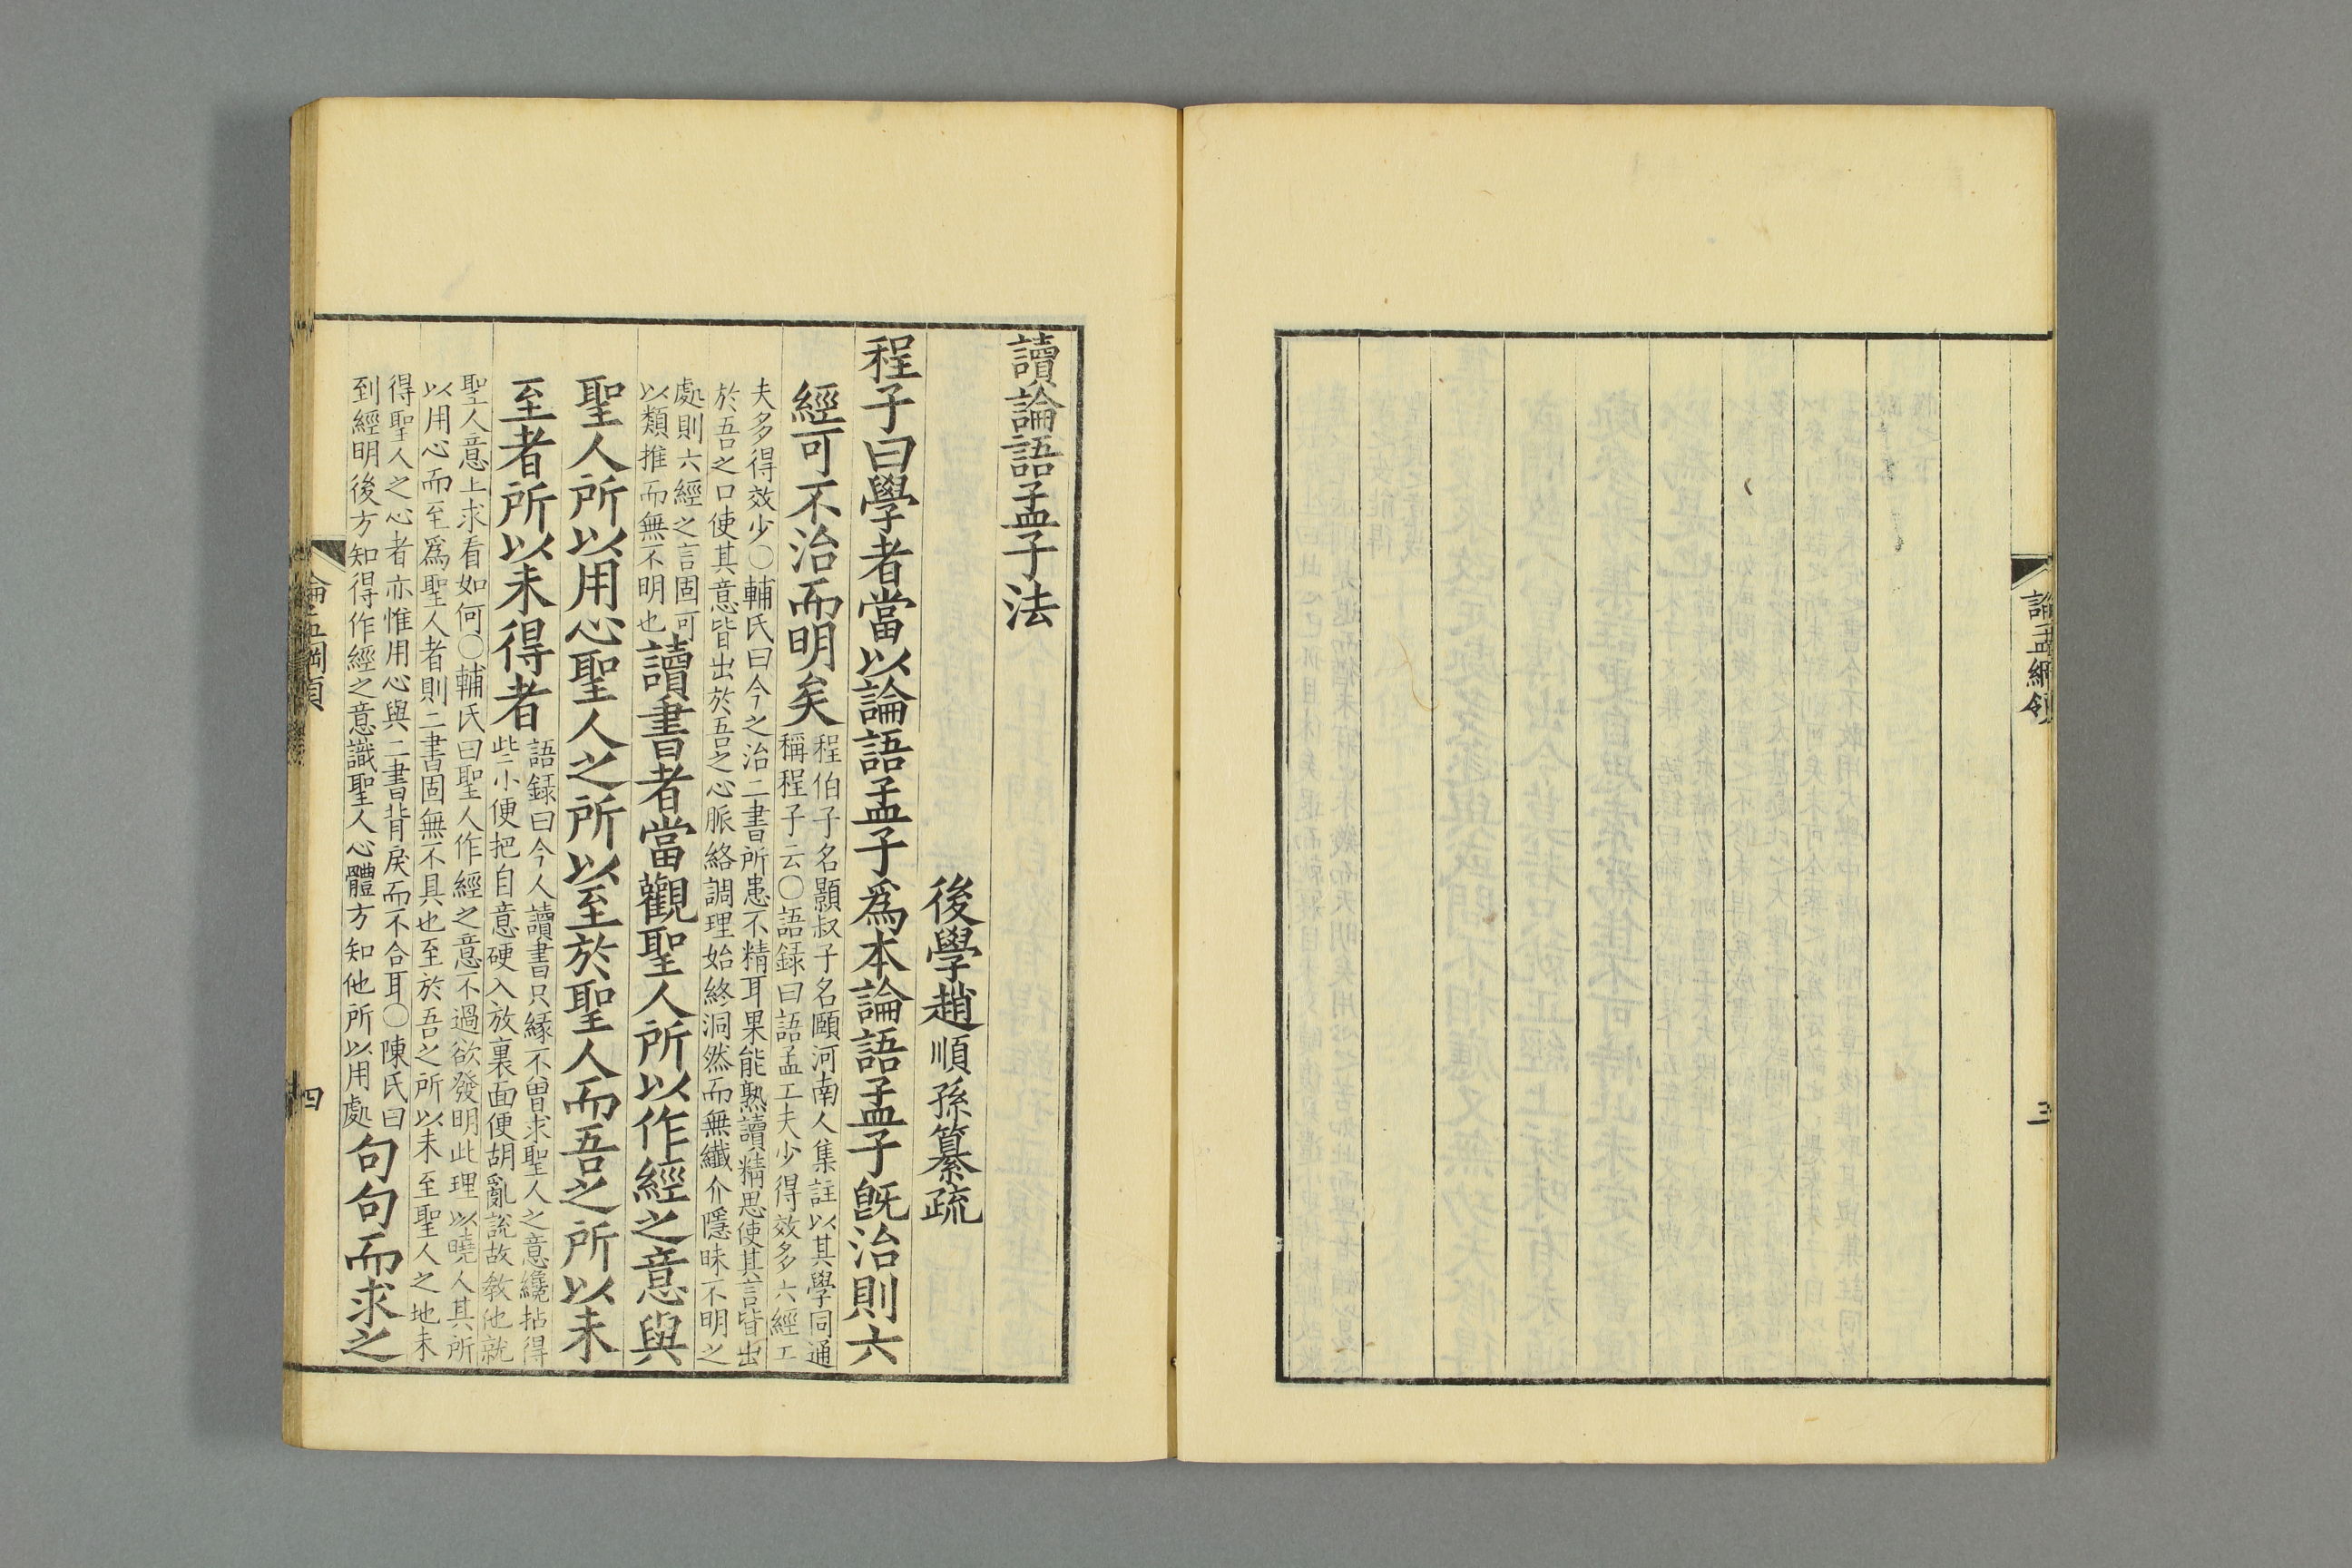 論孟綱領
三
讀論語孟子法
後學趙順孫纂疏
程子曰學者當以論語孟子爲本論語孟子旣治則六
經可不治而明矣
程伯子名顥叔子名頤河南人集註以其學同通
稱程子云〇語録曰語孟工夫少得效多六經工
夫多得效少〇輔氏曰今之治二書所患不精耳果能熟讀精思使其言皆出
於吾之口使其意皆出於吾之心脈絡調理始終洞然而無纖介隱昧不明之
處則六經之言固可
以類推而無不明也
讀書者當觀聖人所以作經之意與
聖人所以用心聖人之所以至於聖人而吾之所以未
至者所以未得者
語録曰今人讀書只緣不曾求聖人之意纔拈得
些小便把自意硬入放裏面便胡亂說故教他就
聖人意上求看如何〇輔氏曰聖人作經之意不過欲發明此理以曉人其所
以用心而至爲聖人者則二書固無不具也至於吾之所以未至聖人之地未
得聖人之心者亦惟用心與二書背戾而不合耳〇陳氏曰
到經明後方知得作經之意識聖人心體方知他所以用處
句句而求之
論孟綱領
四